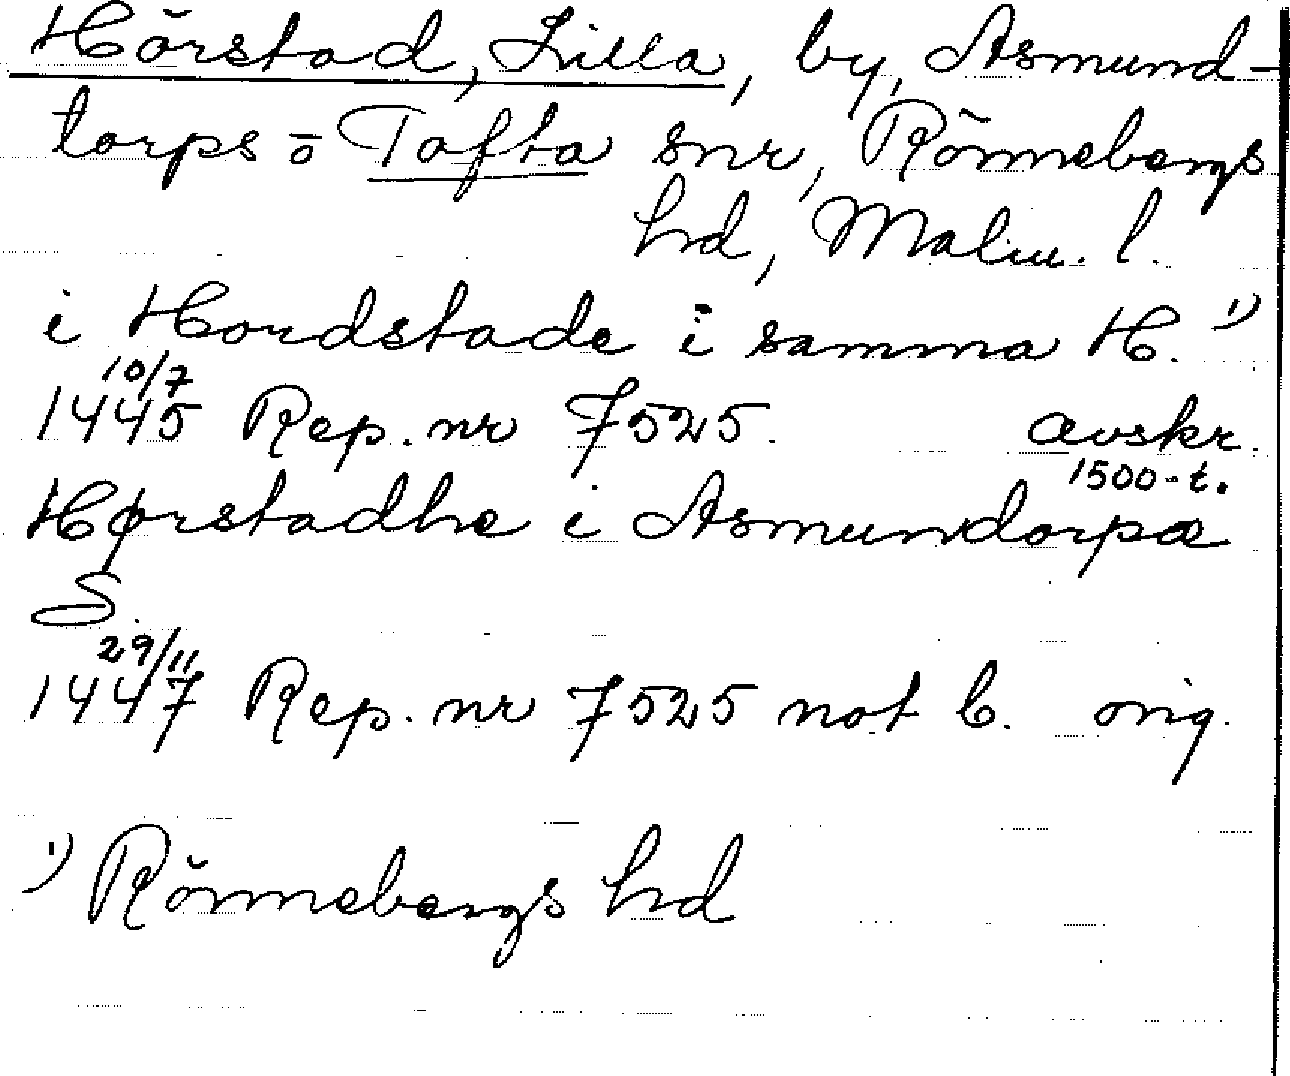 Hörstad, Lilla, by, Asmund-
torps o Tofta snr, Rönnebergs
hd, Malm. l.
i Hordstade i samma H. 1)
10/7
1445 Rep. nr 7525. avskr.
1500-t.
Hørstadhe i Asmundorpæ
S.
29/11
1447 Rep. nr 7525 not b. orig.
1) Rönnebergs hd